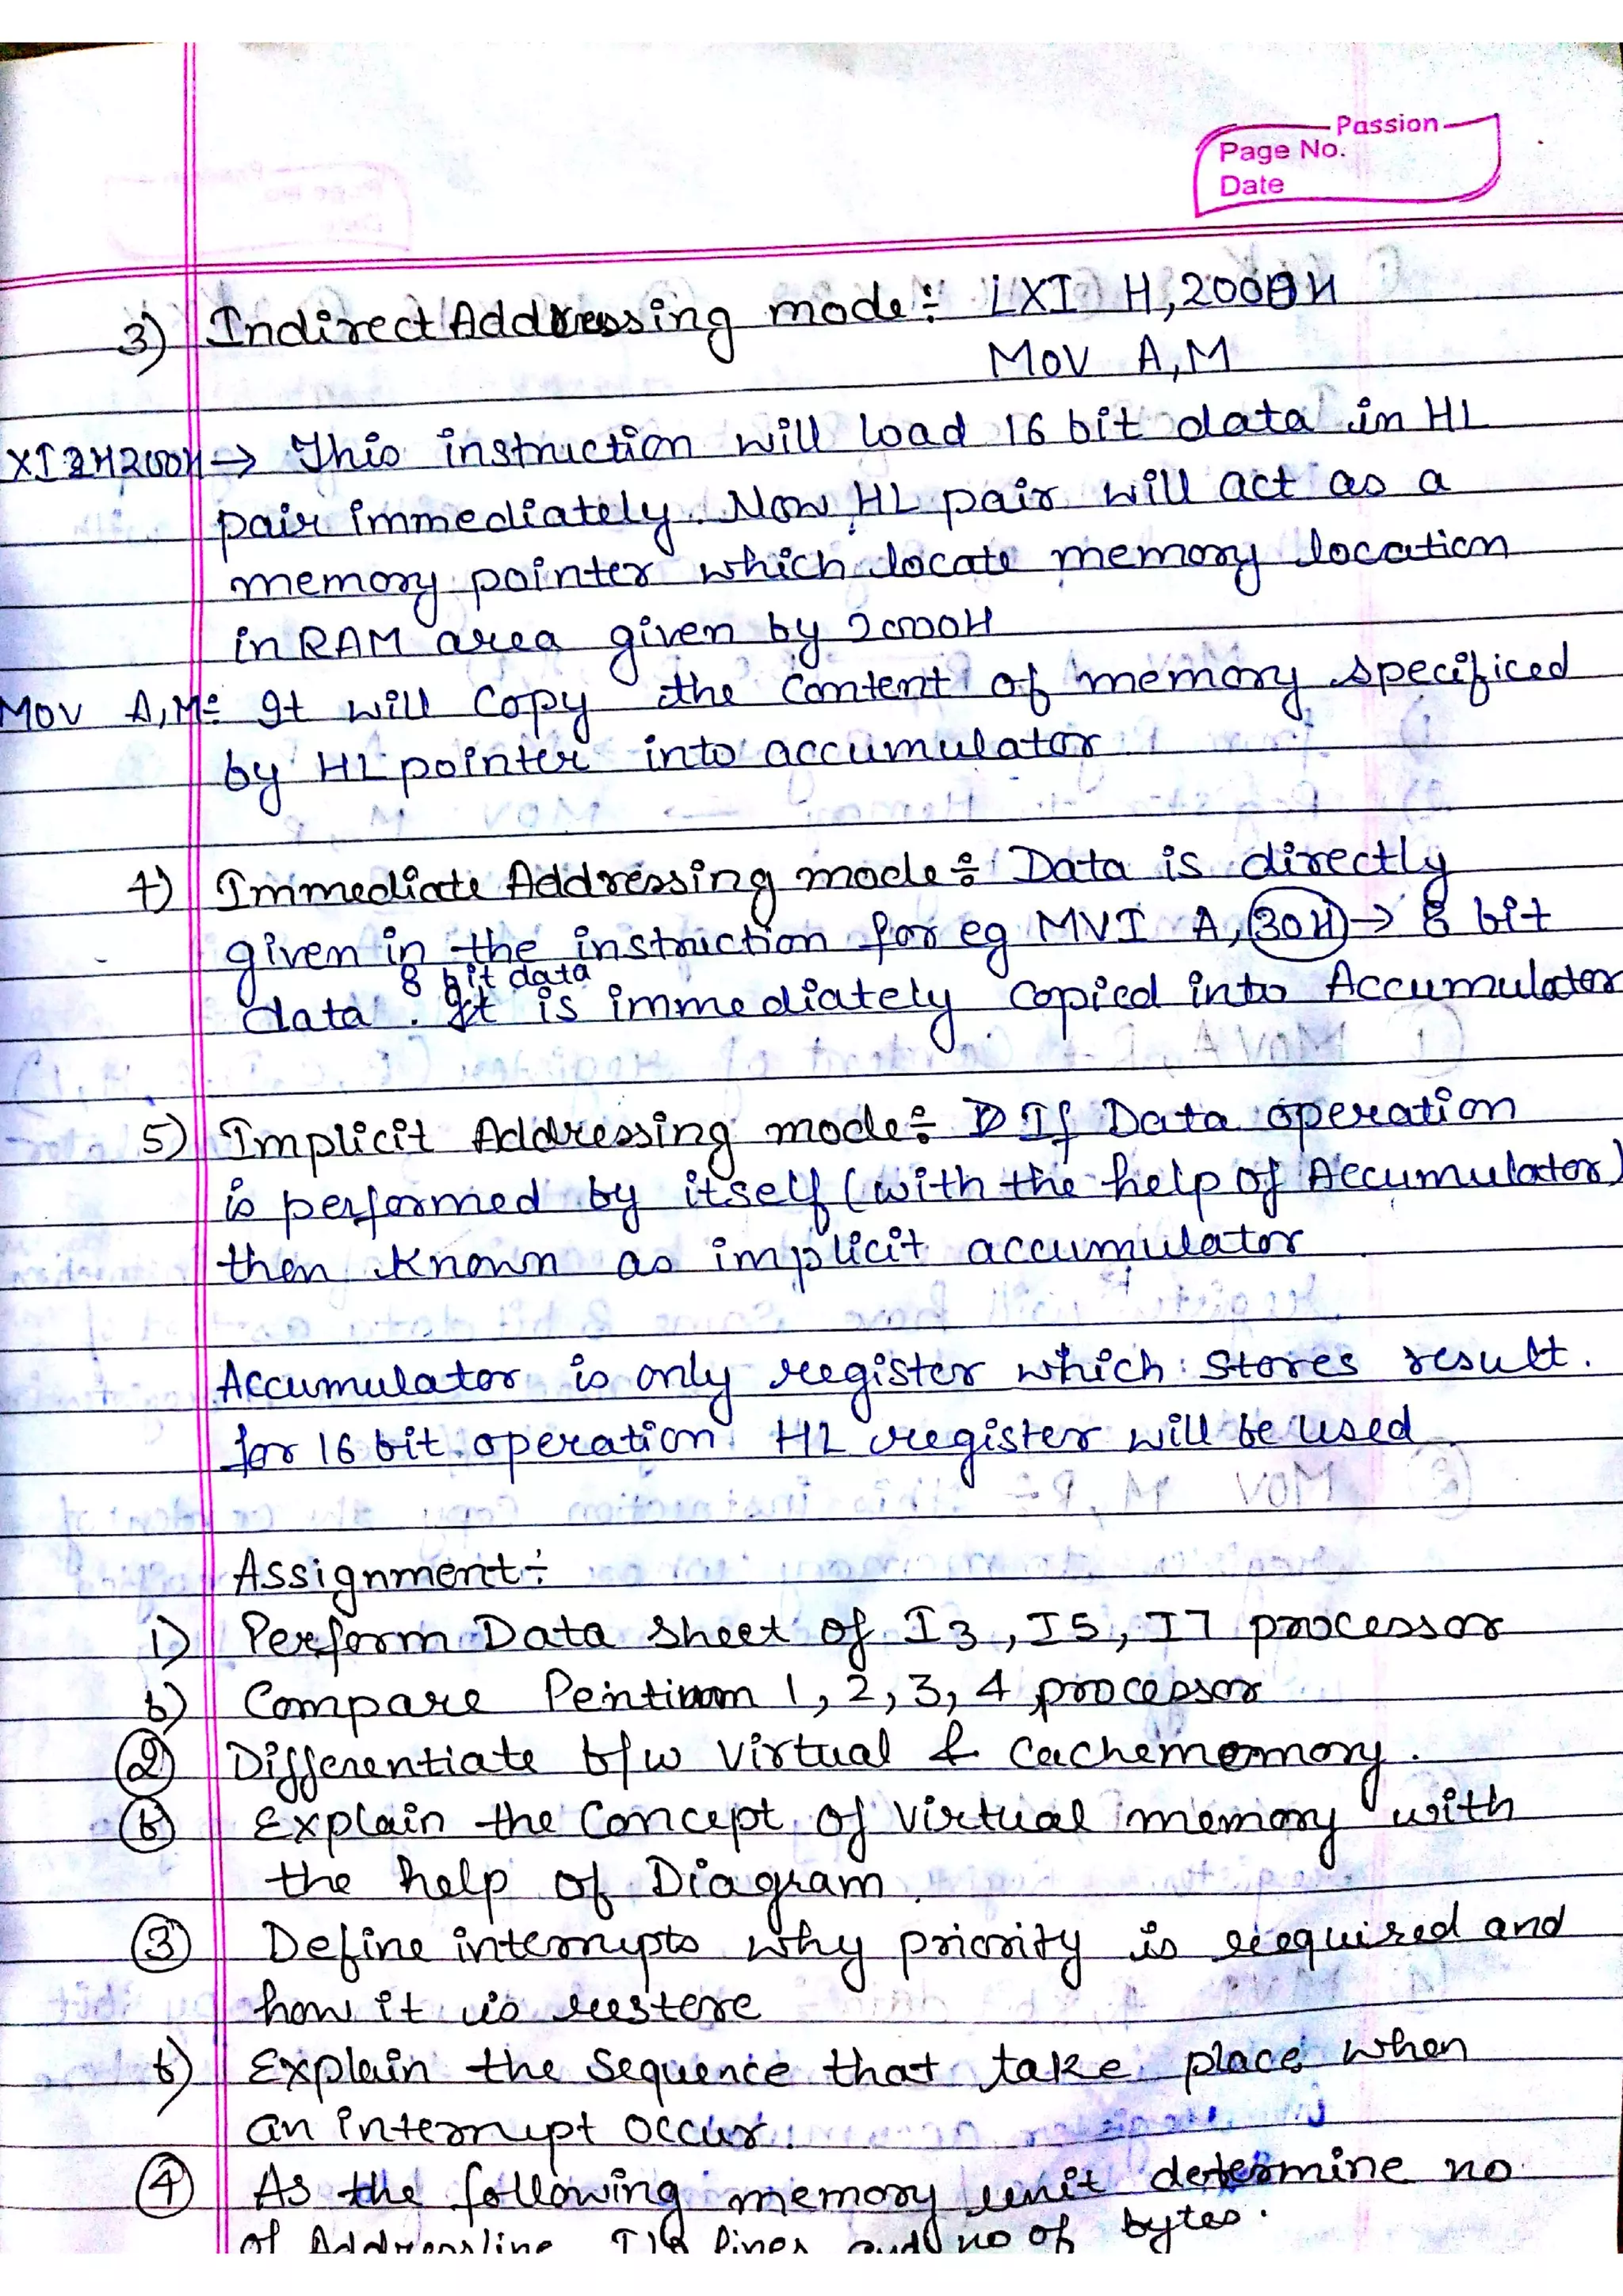 Passion
Page No.
Date
3) Indirect Addressing mode÷ LXI H,2000H
MOV A,M
XI H 2000H → This instruction will load 16 bit data in HL
pair immediately. Now HL pair will act as a
memory pointer which locate memory location
in RAM area given by 2000H
MOV A,M÷ It will copy the content of memory specificed
by HL pointer into accumulator
4) Immediate Addressing mode÷ Data is directly
given in the instruction for eg MVI A, 30H → 8 bit
8 bit data
data. It is immediately copied into Accumulator
5) Implicit Addressing mode÷ If Data operation
is performed by itself (with the help of Accumulator)
then known as implicit accumulator
Accumulator is only register which stores result.
for 16 bit operation HL register will be used
Assignment÷
1) Perform Data sheet of I3, I5, I7 processor
b) Compare Pentium 1, 2, 3, 4 processor
2 Differentiate b/w Virtual & Cachememory.
b Explain the Concept of virtual memory with
the help of Diagram.
3 Define interrupts why priority is required and
how it is restore
b) Explain the sequence that take place when
an interrupt occur.
4 As the following memory unit determine no
of Addressline, I/O lines and no of bytes.